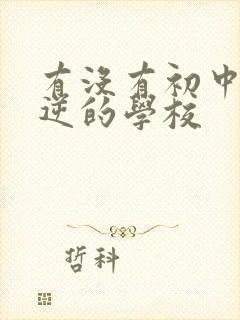 有没有初中
逆的學校
哲科